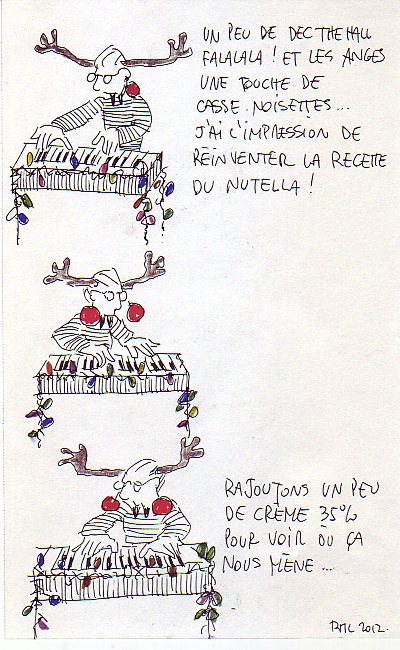 UN PEU DE DEC THE HALL
FALALALA ! ET LES ANGES
UNE TOUCHE DE
CASSE-NOISETTES...
J'AI L'IMPRESSION DE
RÉINVENTER LA RECETTE
DU NUTELLA !
RAJOUTONS UN PEU
DE CRÈME 35%
POUR VOIR OÙ ÇA
NOUS MÈNE...
2012.